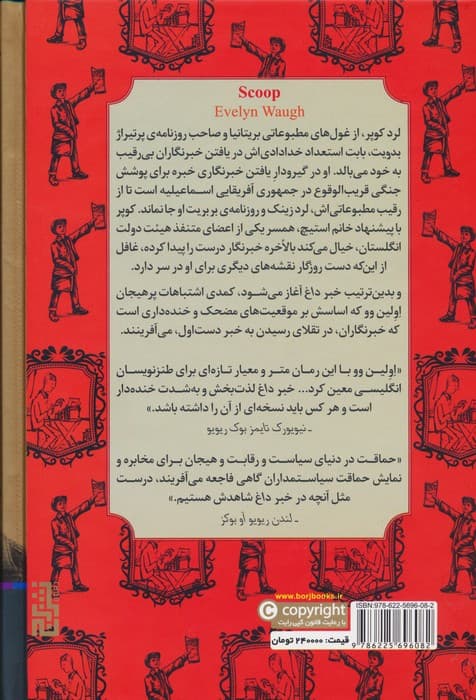 Scoop
Evelyn Waugh
لرد کوپر، از غول‌های مطبوعاتی بریتانیا و صاحب روزنامه‌ی پرتیراژ
بدویت، بابت استعداد خدادادی‌اش در یافتن خبرنگاران بی‌رقیب
به خود می‌بالد. او در گیرودار یافتن خبرنگاری خبره برای پوشش
جنگی قریب‌الوقوع در جمهوری آفریقایی اسماعیلیه است تا از
رقیب مطبوعاتی‌اش، لرد زینک و روزنامه‌ی بربریت او جا نماند. کوپر
با پیشنهاد خانم استیچ، همسر یکی از اعضای متنفذ هیئت دولت
انگلستان، خیال می‌کند بالاخره خبرنگار درست را پیدا کرده، غافل
از این‌که دست روزگار نقشه‌های دیگری برای او در سر دارد.
و بدین‌ترتیب خبر داغ آغاز می‌شود، کمدی اشتباهات پرهیجان
اِولین وو که اساسش بر موقعیت‌های مضحک و خنده‌داری است
که خبرنگاران، در تقلای رسیدن به خبر دست‌اول، می‌آفرینند.
«اِولین وو با این رمان متر و معیار تازه‌ای برای طنزنویسان
انگلیسی معین کرد... خبر داغ لذت‌بخش و به‌شدت خنده‌دار
است و هر کس باید نسخه‌ای از آن را داشته باشد.»
ـ نیویورک تایمز بوک ریویو
«حماقت در دنیای سیاست و رقابت و هیجان برای مخابره و
نمایش حماقت سیاستمداران گاهی فاجعه می‌آفریند، درست
مثل آنچه در خبر داغ شاهدش هستیم.»
ـ لندن ریویو آو بوکز
www.borjbooks.ir
© copyright
با رعایت قانون کپی‌رایت
قیمت: ۲۴۰۰۰۰ تومان
ISBN: 978-622-5696-08-2
9 786225 696082